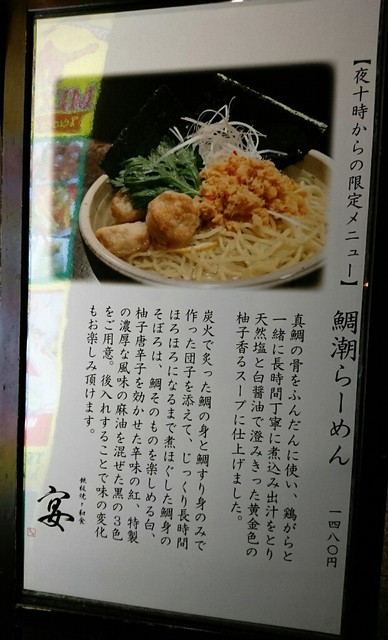 【夜十時からの限定メニュー】
鯛潮らーめん 一四八〇円
真鯛の骨をふんだんに使い、鶏がらと
一緒に長時間丁寧に煮込み出汁をとり
天然塩と白醤油で澄みきった黄金色の
柚子香るスープに仕上げました。
炭火で炙った鯛の身と鯛すり身のみで
作った団子を添えて、じっくり長時間
ほろほろになるまで煮ほぐした鯛身の
そぼろは、鯛そのものを楽しめる白、
柚子唐辛子を効かせた辛味の紅、特製
の濃厚な風味の麻油を混ぜた黒の3色
をご用意。後入れすることで味の変化
もお楽しみ頂けます。
鉄板焼・和食
宴